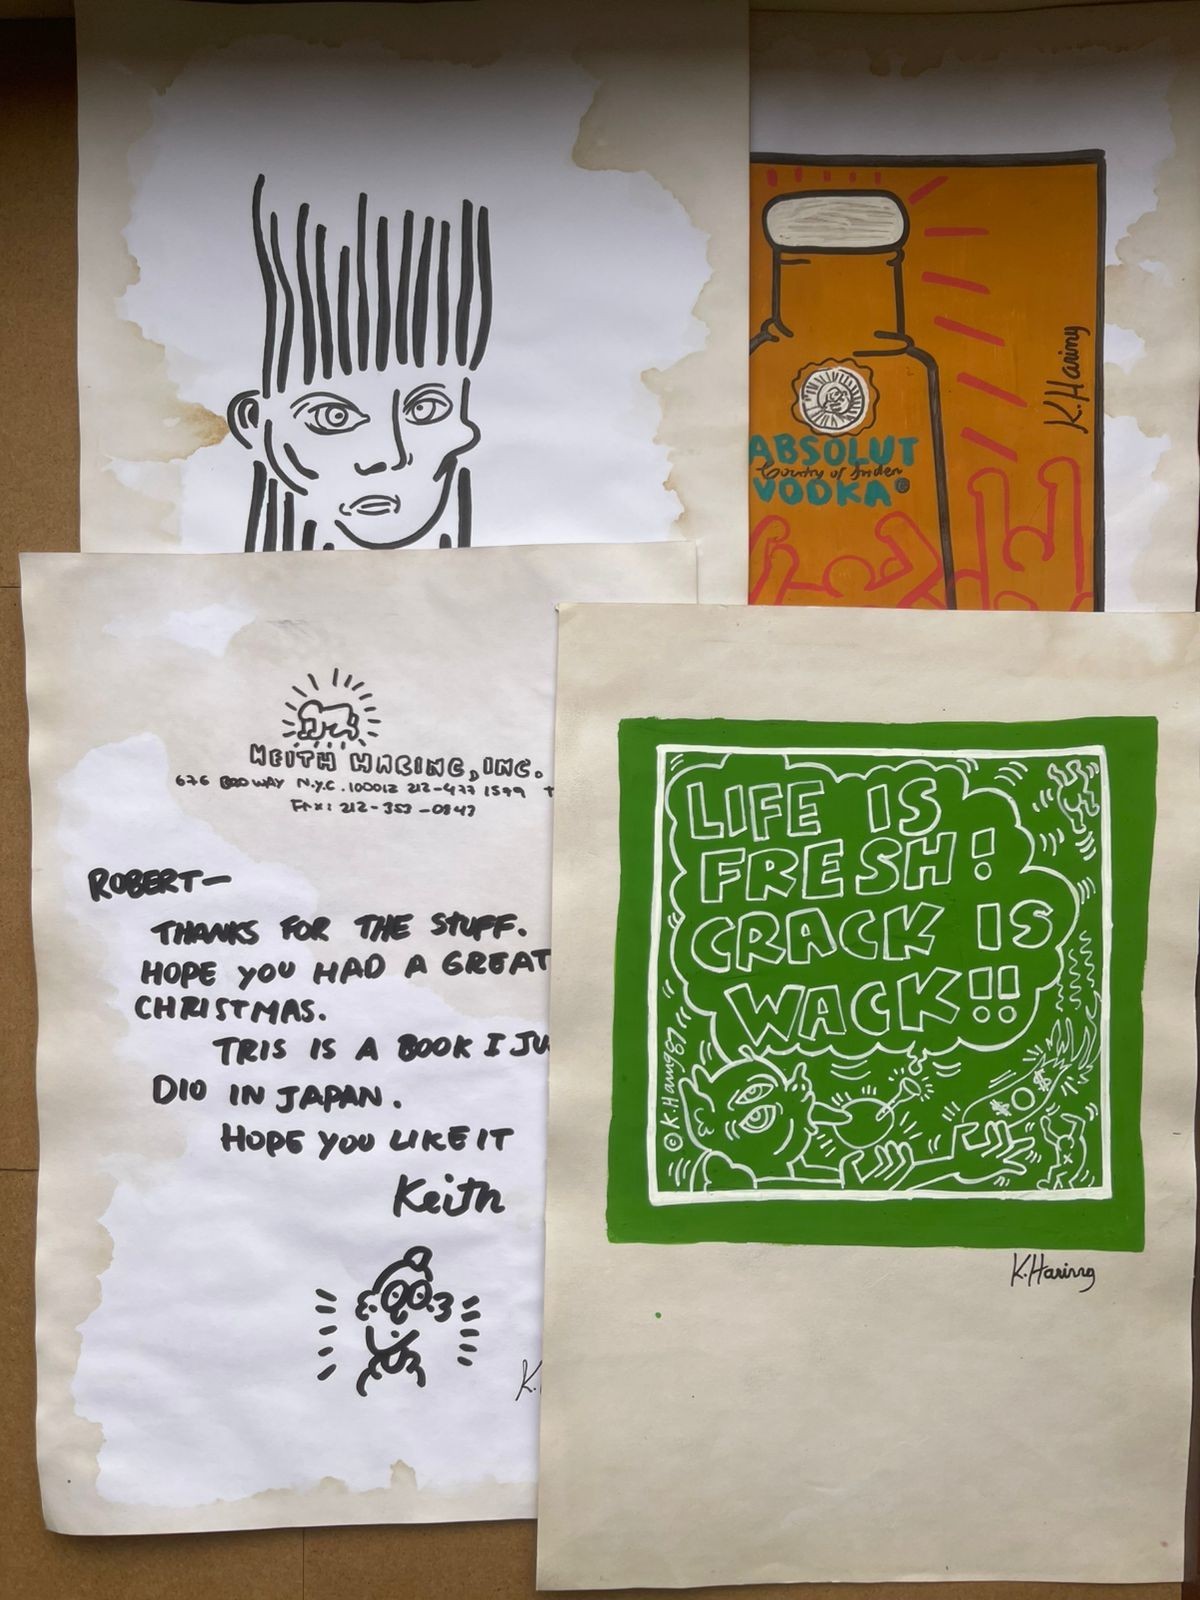 K. Haring
ABSOLUT
Country of Sweden
VODKA
KEITH HARING, INC.
676 BODWAY N.Y.C. 100012 212-477 1599 T
FAX: 212-353-0847
ROBERT—
THANKS FOR THE STUFF.
HOPE YOU HAD A GREAT
CHRISTMAS.
TRIS IS A BOOK I JU
DIO IN JAPAN.
HOPE YOU LIKE IT
Keith
K.
LIFE IS
FRESH!
CRACK IS
WACK!!
© K. Haring 87
$ $
K. Haring